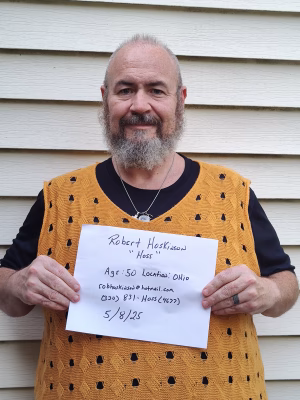 Robert Hoskinson
"Hoss"
Age: 50 Location: Ohio
robhoskinson@hotmail.com
(330) 831-Hoss (4677)
5/8/25